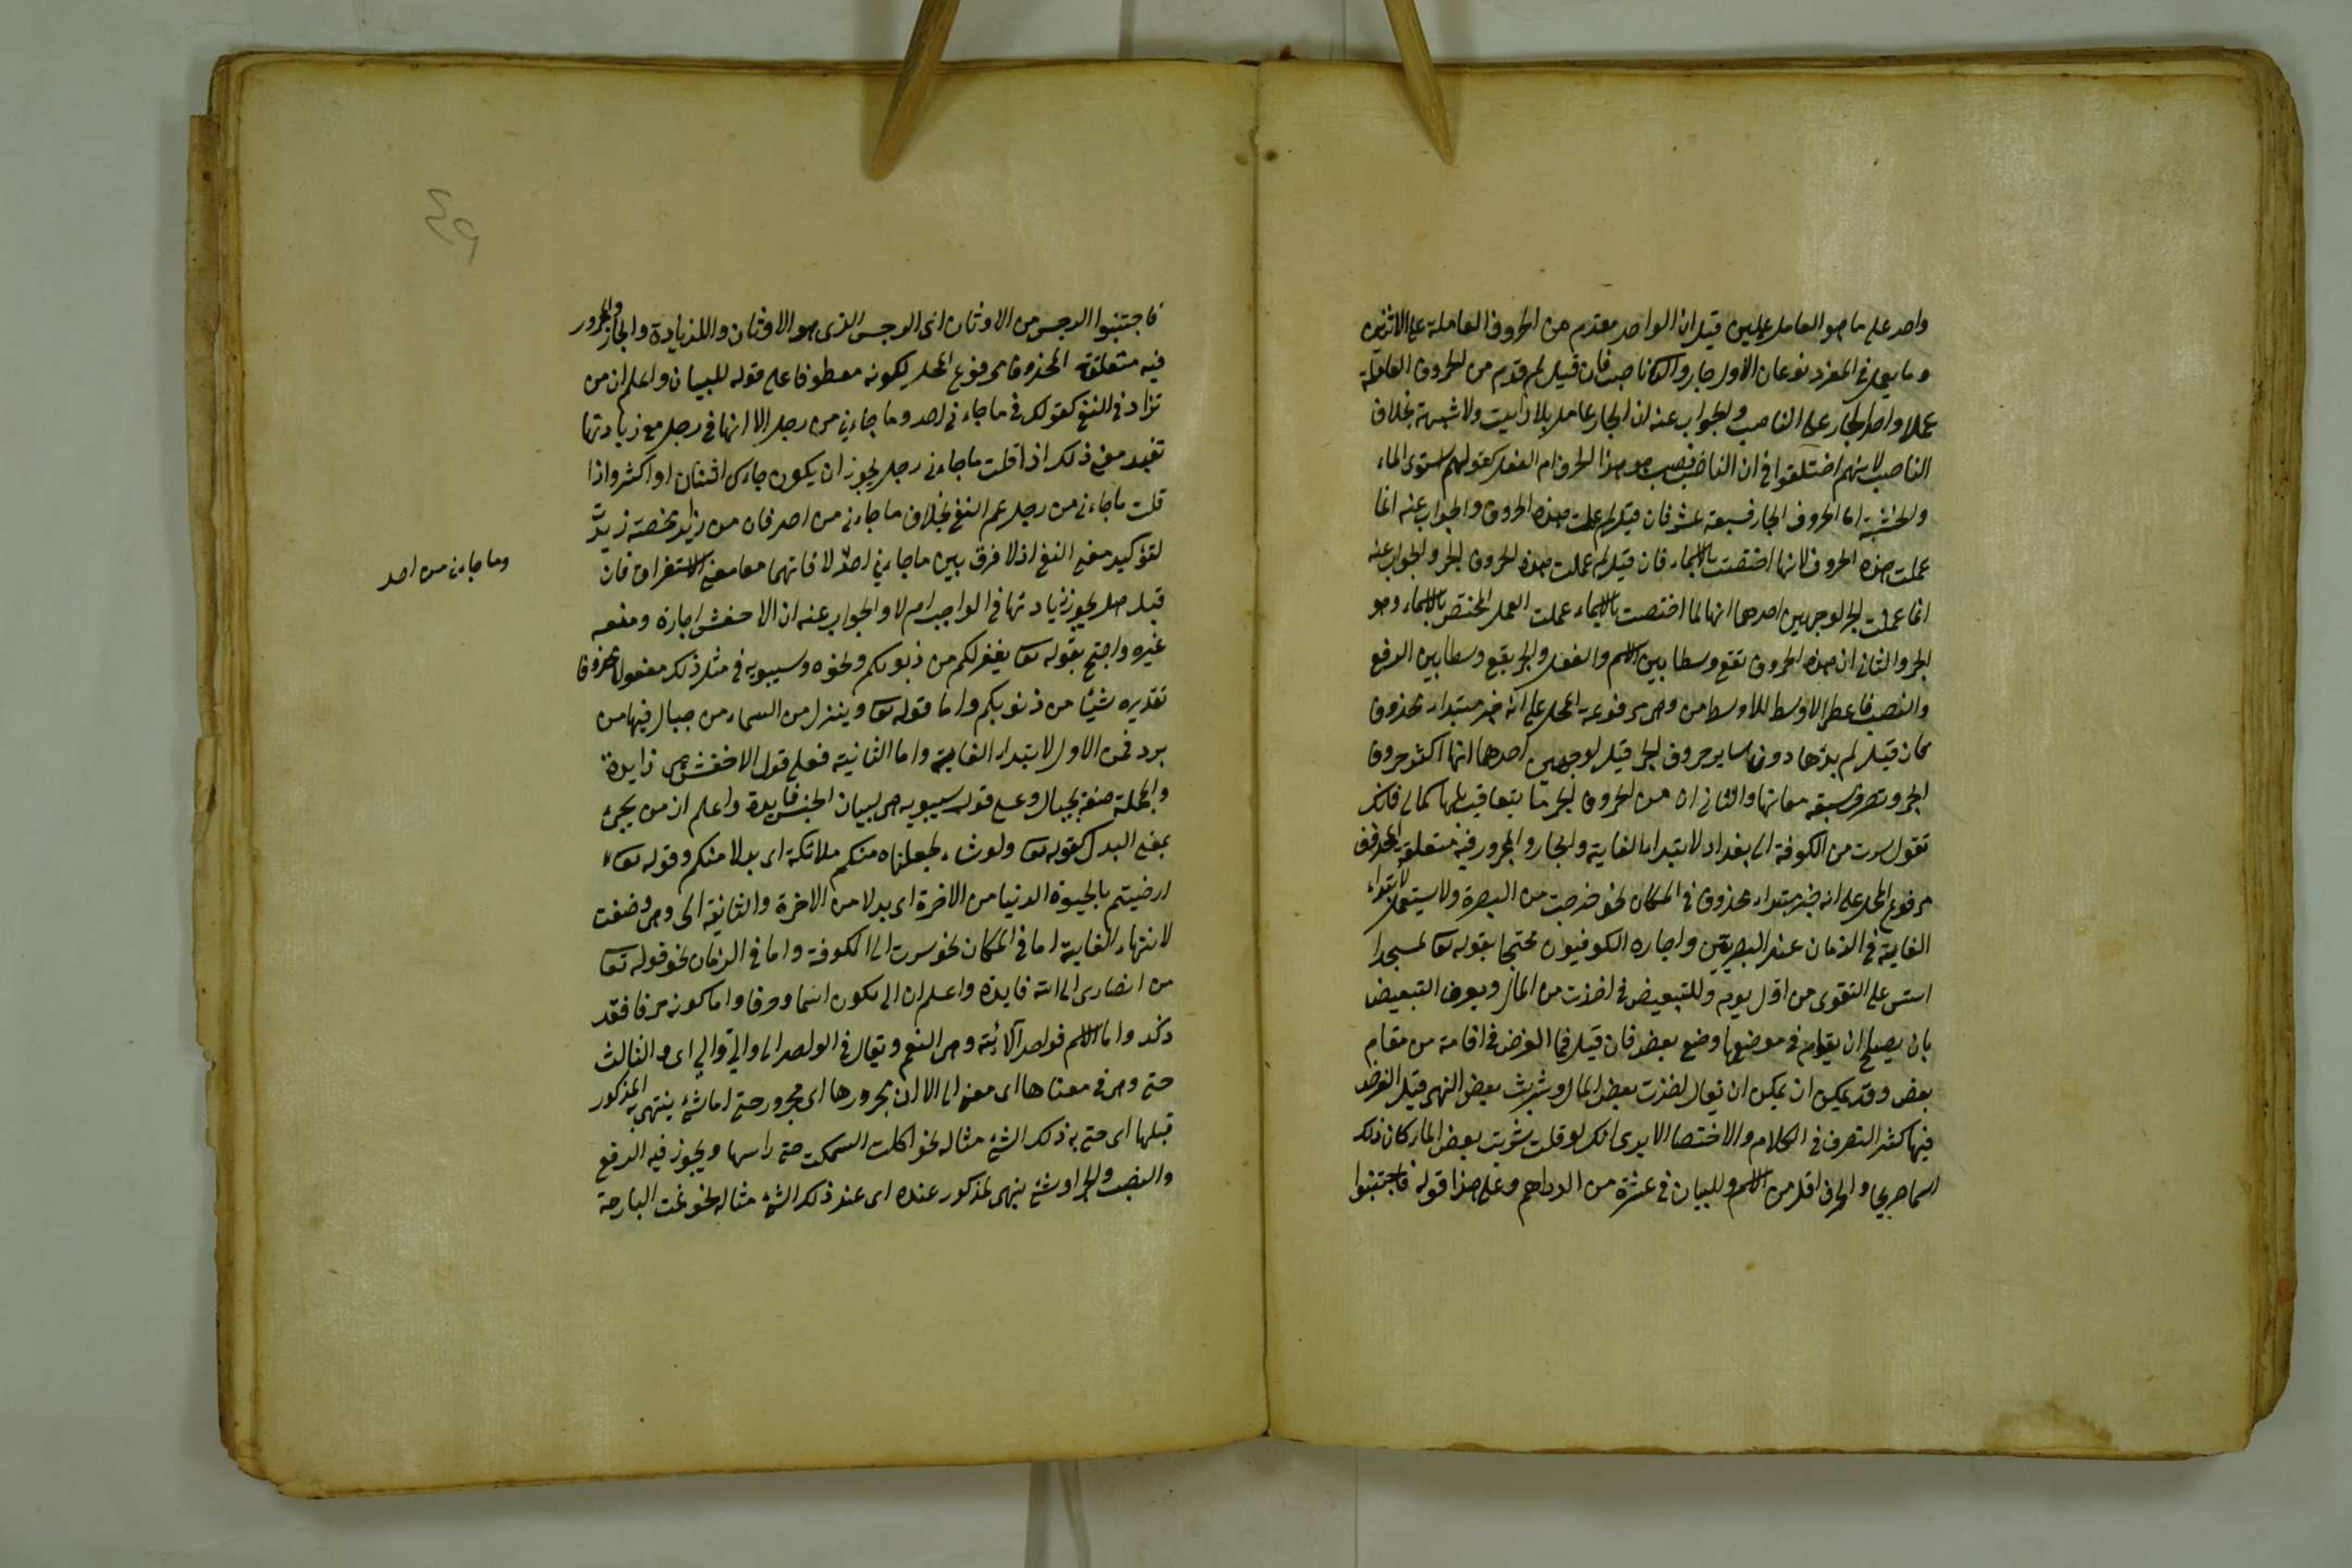 واحد على ما هو العامل عملين قيل ان الواحد مقدم من الحروف العاملة على الاثنين
وما يعمل في المفرد نوعان الاول جار والثاني ناصب فان قيل لم قدم من الحروف العاملة
عملا واحدا الجار على الناصب والجواب عنه ان الجار عامل بلا ولا شبهة بخلاف
الناصب لانهم اختلفوا في ان الناصب هو هذا الحرف ام الفعل كقولهم استوى الماء
والخشبة اما الحروف الجار فسبعة عشر فان قيل لم عملت هذه الحروف والجواب عنه انما
عملت هذه الحروف لانها اختصت بالاسماء فان قيل لم عملت هذه الحروف الجر والجواب عنه
انما عملت الجر لوجهين احدهما انها لما اختصت بالاسماء عملت العمل المختص بالاسماء وهو
الجر والثاني ان هذه الحروف تقع وسطا بين الاسم والفعل والجر يقع وسطا بين الرفع
والنصب فاعطى الاوسط للاوسط من وهي مرفوعة المحل على انه خبر مبتداء محذوف
فان قيل لم بدئها دون ساير حروف الجر قيل لوجهين احدهما انها اكثر حروف
الجر وتصرف سبقه معانيها والثاني ان من الحروف الجر ما يتعاقب لها كالى فانك
تقول سرت من الكوفة الى بغداد لابتداء الغاية والجار والمجرور فيه متعلقه المحذوف
مرفوع المحل على انه خبر مبتداء محذوف في المكان نحو خرجت من البصرة ولا يستعمل لابتداء
الغاية في الزمان عند البصريين واجازه الكوفيون محتجا بقوله تعا لمسجد
اسس على التقوى من اول يوم وللتبعيض في اخذت من المال ويعرف التبعيض
بان يصلح ان يقام في موضعها وضع بعض فان قيل فما الغرض في اقامة من مقام
بعض وقد يمكن ان يمكن ان يقال اخذت بعض المال وشربت بعض النهر قيل الغرض
فيها كثر التصرف في الكلام والاختصا الا يرى انك لو قلت شربت بعض الماء كان ذلك
اسما صريحا والحرف اقل من الاسم وللبيان في عشرة من الدراهم وعلى هذا قوله فاجتنبوا
فاجتنبوا الرجس من الاوثان اى الرجس الذى هو الاوثان والزيادة والجار والمجرور
فيه متعلقة المحذوف مرفوع المحل لكونه معطوفا على قوله للبيان واعلم ان من
تزاد في النفي كقولك في ما جاءني احد وما جاءني من رجل الا انها في رجل مع زيادتها
تفيد معنى ذلك اذا قلت ما جاءني رجل يجوز ان يكون جاءك اثنان او اكثر واذا
قلت ما جاءني من رجل عم النفي بخلاف ما جاءني من احد فان من زائد محضة زيدت
لتوكيد معنى النفي اذ لا فرق بين ما جاءني احد لافادتهما معا معنى الاستغراق فان
وما جاءني من احد
قيل هل يجوز زيادتها في الواجب ام لا والجواب عنه ان الاخفش اجازه ومنعه
غيره واحتج بقوله تعا يغفر لكم من ذنوبكم ونحوه وسيبويه في مثل ذلك مفعولا محذوفا
تقديره شيئا من ذنوبكم واما قوله تعا وينزل من السماء من جبال فيها من
برد فمن الاول لابتداء الغاية واما الثانية فعلى قول الاخفش هي زايدة
والجملة صفة لجبال وعلى قول سيبويه هي لبيان الجنس فايدة واعلم ان من يجئ
بمعنى البدل كقوله تعا ولو شاء لجعلناه منكم ملائكة اى بدلا منكم وقوله تعا
ارضيتم بالحيوة الدنيا من الاخرة اى بدلا من الاخرة والثانية الى وهي وضعت
لانتهاء الغاية اما في المكان نحو سرت الى الكوفة واما في الزمان نحو قوله تعا
من انصارى الى الله فايدة واعلم ان الى يكون اسما وحرفا واما كونه حرفا فقد
ذكر واما الاسم فواحد آلائه وهي النعم ويقال في الواحد الى والي والي اى والثالث
حتى وهي في معناها اى معنى الى الا ان مجرورها اى مجرور حتى اما شئ ينتهى به المذكور
قبلها اى حتى به ذلك الشئ مثاله نحو اكلت السمكت حتى راسها ويجوز فيه الرفع
والنصب والجر او شئ ينهى المذكور عنده اى عند ذلك الشئ مثاله نحو نمت البارحة